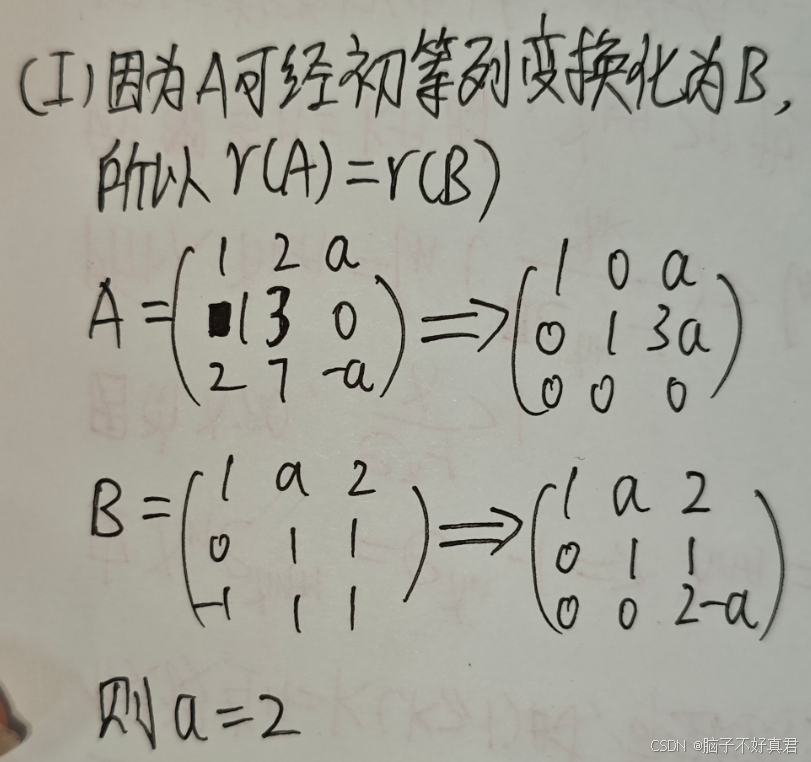 (I)因为A可经初等列变换化为B,
所以 r(A)=r(B)
A=(1 2 a
1 3 0
2 7 -a) ⇒ (1 0 a
0 1 3a
0 0 0)
B=(1 a 2
0 1 1
-1 1 1) ⇒ (1 a 2
0 1 1
0 0 2-a)
则 a=2
CSDN @脑子不好真君